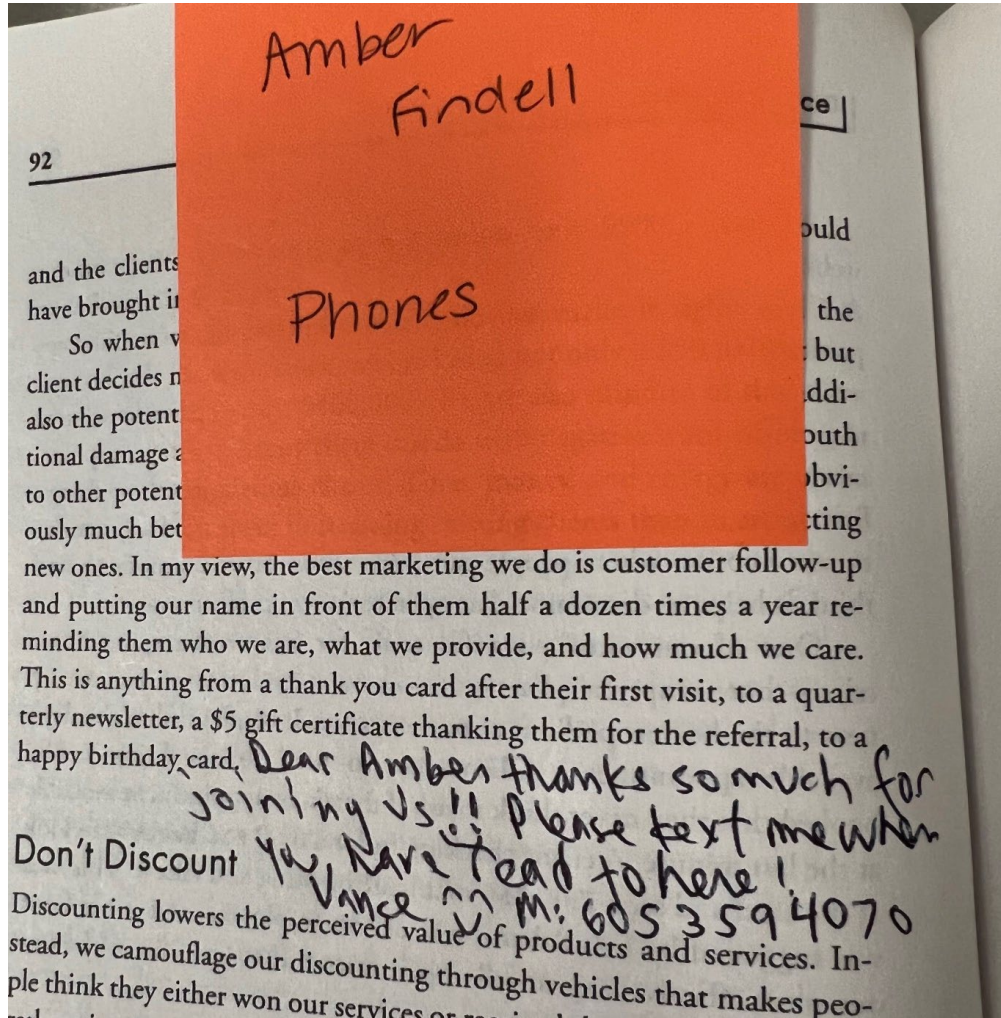 Amber
Findell
ce
92
Phones
and the clients ould
have brought i the
So when v but
client decides n ddi-
also the potent outh
tional damage a obvi-
to other potent cting
ously much bet
new ones. In my view, the best marketing we do is customer follow-up
and putting our name in front of them half a dozen times a year re-
minding them who we are, what we provide, and how much we care.
This is anything from a thank you card after their first visit, to a quar-
terly newsletter, a $5 gift certificate thanking them for the referral, to a
happy birthday card. Dear Amber thanks so much for
joining us!! Please text me when
Don't Discount you have read to here!
Vance M: 605 359 4070
Discounting lowers the perceived value of products and services. In-
stead, we camouflage our discounting through vehicles that makes peo-
ple think they either won our services or